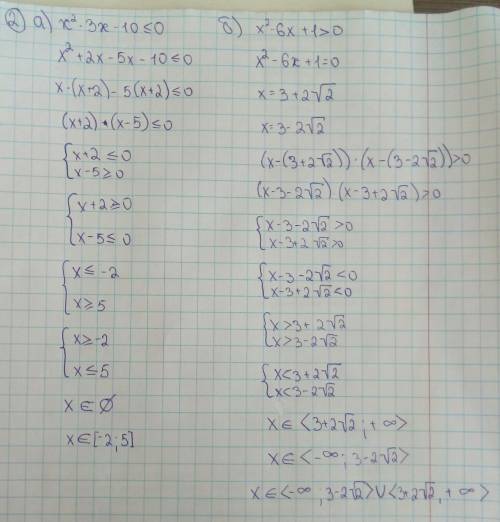 ② а) x² - 3x - 10 ≤ 0
x² + 2x - 5x - 10 ≤ 0
x · (x+2) - 5(x+2) ≤ 0
(x+2) · (x-5) ≤ 0
{ x+2 ≤ 0
x-5 ≥ 0
{ x+2 ≥ 0
x-5 ≤ 0
{ x ≤ -2
x ≥ 5
{ x ≥ -2
x ≤ 5
x ∈ ∅
x ∈ [-2; 5]
б) x² - 6x + 1 > 0
x² - 6x + 1 = 0
x = 3 + 2√2
x = 3 - 2√2
(x - (3+2√2)) · (x - (3-2√2)) > 0
(x - 3 - 2√2) (x - 3 + 2√2) > 0
{ x - 3 - 2√2 > 0
x - 3 + 2√2 > 0
{ x - 3 - 2√2 < 0
x - 3 + 2√2 < 0
{ x > 3 + 2√2
x > 3 - 2√2
{ x < 3 + 2√2
x < 3 - 2√2
x ∈ ⟨3+2√2; +∞⟩
x ∈ ⟨-∞; 3-2√2⟩
x ∈ ⟨-∞; 3-2√2⟩ ∪ ⟨3+2√2, +∞⟩